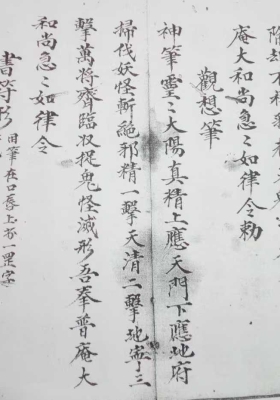 庵大和尚急〻如律令勅
觀想筆
神筆靈〻大陽真精上應天門下應地府
掃伐妖怪斬絕邪精一擊天清二擊地寧三
擊萬將齊臨收捉鬼怪滅形吾奉普庵大
和尚急〻如律令
書符形用筆在口唇上亦一罡字